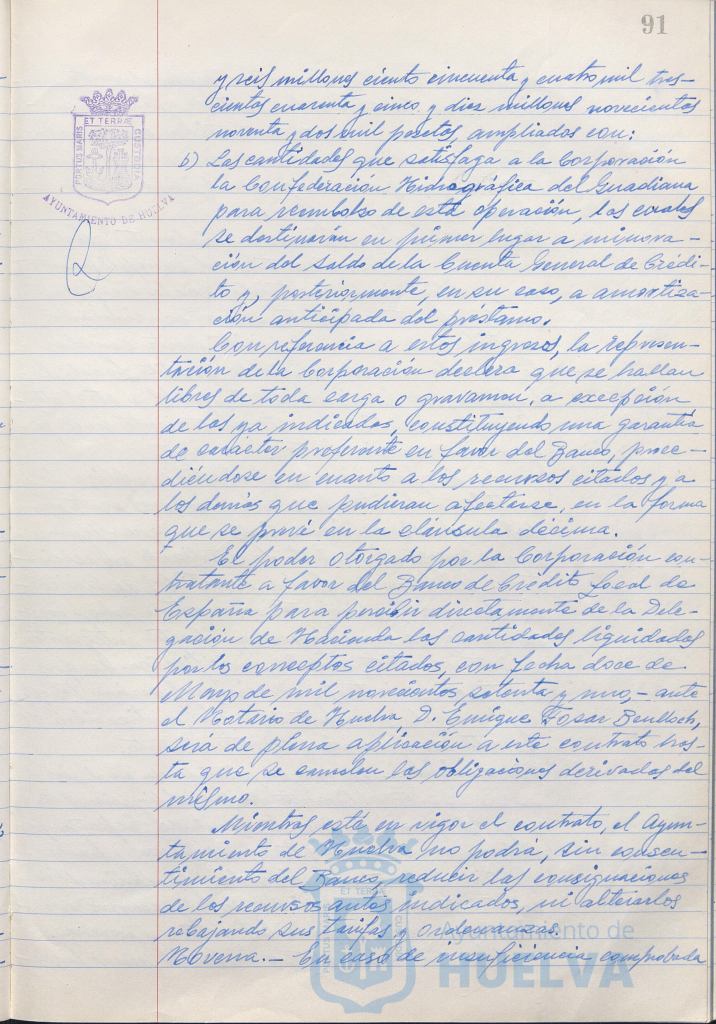 91
y seis millones ciento cincuenta y cuatro mil tres-
cientas cuarenta y cinco y diez millones novecientas
noventa y dos mil pesetas, ampliados con:
b) Las cantidades que satisfaga a la Corporación
la Confederación Hidrográfica del Guadiana
para reembolso de esta operación, las cuales
se destinarán en primer lugar a minora-
ción del saldo de la Cuenta General de Crédi-
to y, posteriormente, en su caso, a amortiza-
ción anticipada del préstamo.
Con referencia a estos ingresos, la represen-
tación de la Corporación declara que se hallan
libres de toda carga o gravamen, a excepción
de los ya indicados, constituyendo una garantía
de carácter preferente en favor del Banco, proce-
diéndose en cuanto a los recursos citados y a
los demás que pudieran afectarse, en la forma
que se prevé en la cláusula décima.
El poder otorgado por la Corporación con-
tratante a favor del Banco de Crédito Local de
España para percibir directamente de la Dele-
gación de Hacienda las cantidades liquidadas
por los conceptos citados, con fecha doce de
Marzo de mil novecientos setenta y uno,- ante
el Notario de Huelva D. Enrique Fosar Benlloch,
será de plena aplicación a este contrato has-
ta que se cancelen las obligaciones derivadas del
mismo.
Mientras esté en vigor el contrato, el Ayun-
tamiento de Huelva no podrá, sin consen-
timiento del Banco, reducir las consignaciones
de los recursos antes indicados, ni alterarlos
rebajando sus tarifas y Ordenanzas.
Novena.- En caso de insuficiencia comprobada
PORTUS MARIS ET TERRAE CUSTODIA
AYUNTAMIENTO DE HUELVA
PORTUS MARIS ET TERRAE CUSTODIA
Ayuntamiento de
HUELVA